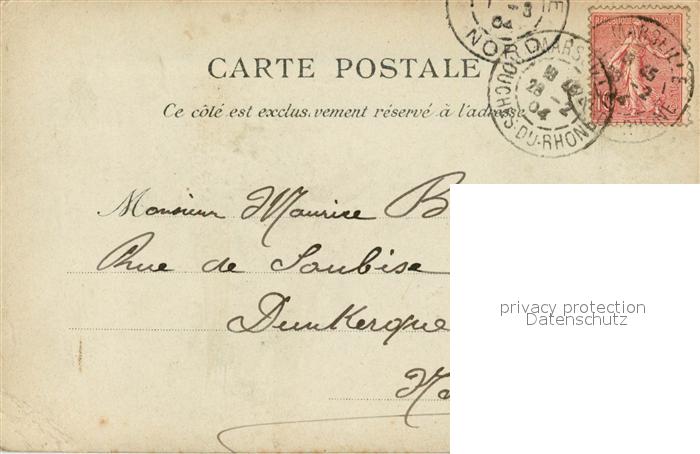 NORD
04
CARTE POSTALE
Ce côté est exclusivement réservé à l'adresse
MARSEILLE
28 -2
04
BOUCHES-DU-RHONE
MARSEILLE
Monsieur Maurice B
Rue de Soubise
Dunkerque
privacy protection
Datenschutz